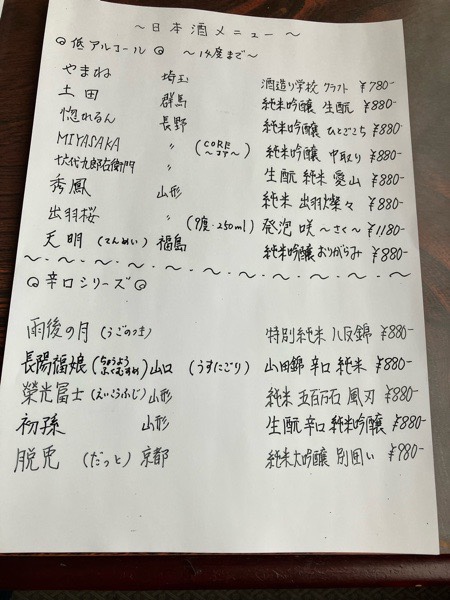 ～日本酒メニュー～
◎低アルコール◎ ～14度まで～
やまね 埼玉 酒造り学校 クラフト ¥780-
土田 群馬 純米吟醸 生酛 ¥880-
惚れるん 長野 純米吟醸 ひとごこち ¥880-
MIYASAKA 〃 (CORE ～コア～) 純米吟醸 中取り ¥880-
十六代九郎右衛門 〃 生酛 純米 愛山 ¥880-
秀鳳 山形 純米 出羽燦々 ¥880-
出羽桜 〃 (9度・250ml) 発泡 咲 ～さく～ ¥1180-
天明 (てんめい) 福島 純米吟醸 おりがらみ ¥880-
～・～・～・～・～・～・～・～・～・～
◎辛口シリーズ◎
雨後の月 (うごのつき) 特別純米 八反錦 ¥880-
長陽福娘 (ちょうようふくむすめ) 山口 (うすにごり) 山田錦 辛口 純米 ¥880-
榮光冨士 (えいこうふじ) 山形 純米 五百万石 風刃 ¥880-
初孫 山形 生酛 辛口 純米吟醸 ¥880-
脱兎 (だっと) 京都 純米大吟醸 別囲い ¥980-